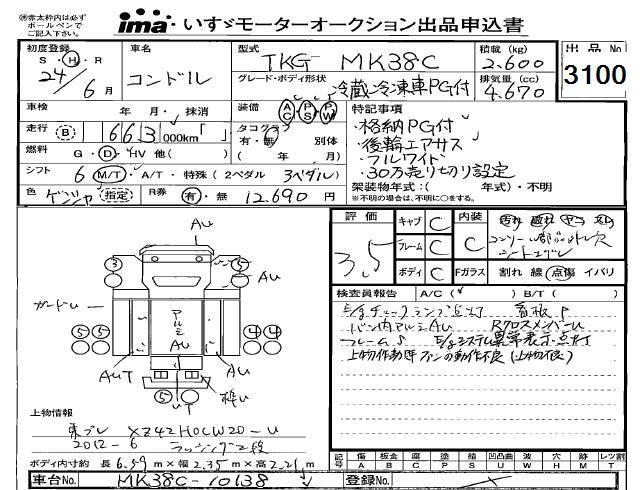 ㊟赤太枠内は必ず
ボールペンで
ご記入下さい。
ima いすゞモーターオークション出品申込書
初度登録 S・H・R 24/6月
車名 コンドル
型式 TKG- MK38C
グレード・ボディ形状 冷蔵冷凍車PG付
積載 (kg) 2.600
排気量 (cc) 4.670
出品No 3100
車検 年 月・抹消
走行 (B) 663 000km「 」
燃料 G・D・HV 他( )
シフト 6 M/T・A/T・特殊 (2ペダル 3ペダル)
色 ゲンシャ (指定)
R券 有・無 12.690円
装備 AC PS PW
タコグラフ 有・無 別体
( 年 月)
特記事項
・格納PG付
・後輪エアサス
・フルワイド
・30万売り切り設定
架装物年式:( 年式)・不明
※不明の場合は、不明に○をする。
評価 3.5
キャブ C
フレーム C
ボディ C
内装 C
Fガラス 割れ 線 点傷 イバリ
コンソール部品外し穴
シートコゲ
検査員報告 A/C( ) B/T( )
E/gチェックランプ点灯 看板P
バン内アルミAU RクロスメンバーU
フレームS E/gシステム異常表示・点灯
上物作動時ファンの動作不良(上物不良)
AU
3
AU
ガードU
アルミ
AU
5 5
4 4
AUT
AU
5
UT
枠U
上物情報
東プレ XZ42H0CW20-U
2012-6 ラッシング2段
ボディ内寸約 長 6.59 m×幅 2.35 m×高 2.21 m
記号 傷 板金 腐 塗 錆 凹凸曲 波 穴 跡 レツ割
A B C P S U W H M T
車台No. MK38C-10138
登録No.